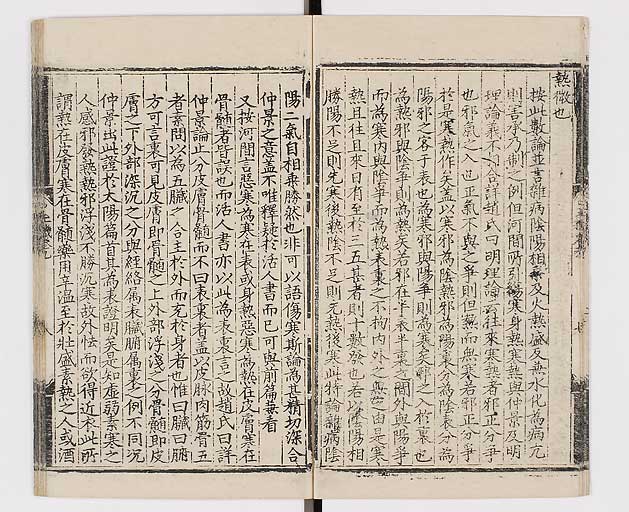 熱微也
按此數論並言雜病陰陽相乗及火熱盛反兼水化為病亢
則害承乃制之例但河間所引傷寒身熱寒熱與仲景及明
理論義不切合詳趙氏曰明理論云徃來寒熱者邪正分爭
也邪氣之入也正氣不與之爭則但熱而無寒若邪正分爭
於是寒熱作矣盖以寒邪為陰熱邪為陽裏分為陰表分為
陽邪之客于表也為寒邪與陽爭則為寒矣邪之入於裏也
為熱邪與陰爭則為熱矣若邪在半表半裏之間外與陽爭
而為寒内與陰爭而為熱表裏之不拘内外之無定由是寒
熱且徃且來日有至於三五甚者則十數發也若以陰陽相
勝陽不足則先寒後熱陰不足則先熱後寒此特論雜病陰
陽二氣自相乗勝然也非可以語傷寒斯論為甚精切深合
仲景之意盖不唯釋疑於活人書而已可與前篇兼看
又按河間言惡寒為寒在表或身熱惡寒為熱在皮膚寒在
骨髓者皆誤也而活人書亦以此為表裏言之故趙氏曰詳
仲景論止分皮膚骨髓而不曰表裏者盖以皮脉肉筋骨五
者素問以為五臓之合主於外而充於身者也惟曰臓曰腑
方可言裏可見皮膚即骨髓之上外部浮淺之分骨髓即皮
膚之下外部深沉之分與經絡属表臓腑属裏之例不同况
仲景出此證於太陽篇首其為表證明矣是知虚弱素寒之
人感邪發熱熱邪浮淺不勝沉寒故外怯而欲得近衣此所
謂熱在皮膚寒在骨髓藥用辛温至於壮盛素熱之人或酒